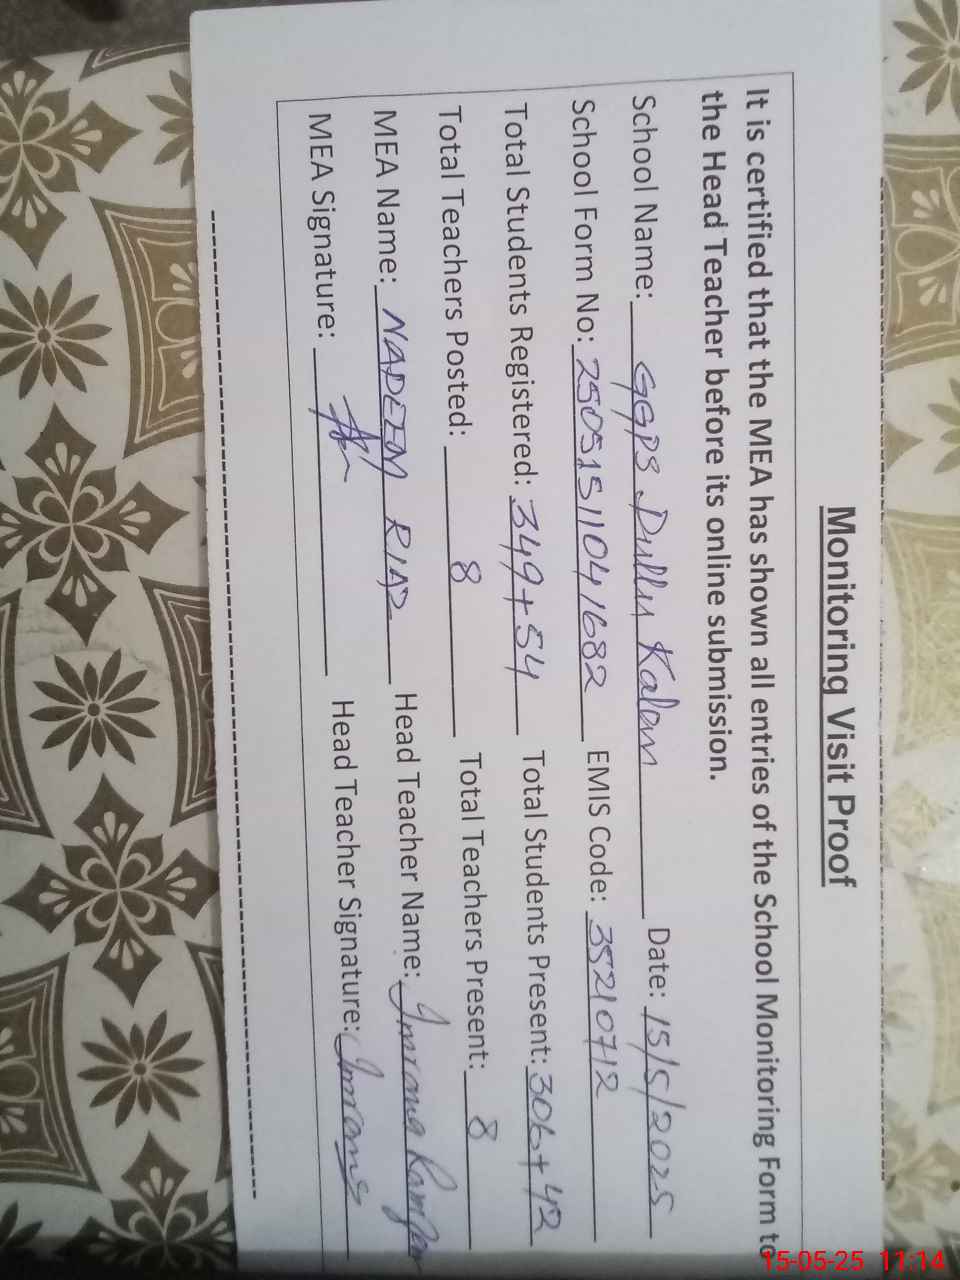 Monitoring Visit Proof
It is certified that the MEA has shown all entries of the School Monitoring Form to
the Head Teacher before its online submission.
School Name: GGPS Dullu Kalan Date: 15/5/2025
School Form No: 25051511041682 EMIS Code: 35210712
Total Students Registered: 349+54 Total Students Present: 306+42
Total Teachers Posted: 8 Total Teachers Present: 8
MEA Name: NADEEM RIAZ Head Teacher Name: Imrana
MEA Signature: Head Teacher Signature: Imrana
15-05-25 11:14